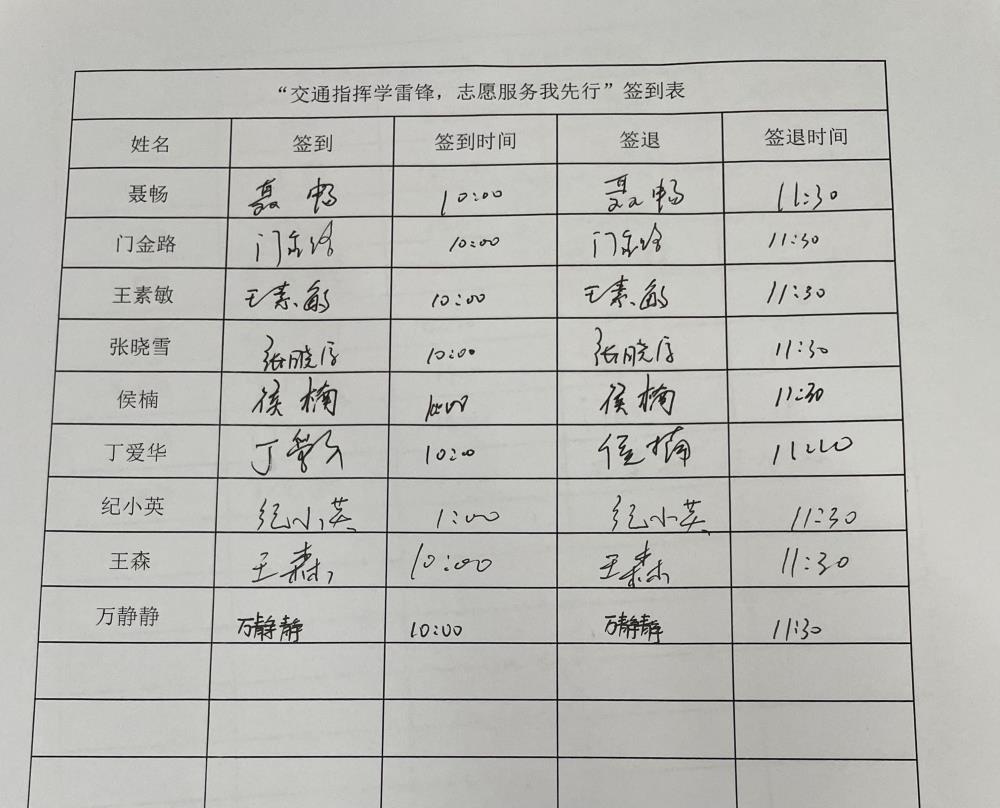 “交通指挥学雷锋，志愿服务我先行”签到表
姓名 签到 签到时间 签退 签退时间
聂畅 聂畅 10:00 聂畅 11:30
门金路 门金路 10:00 门金路 11:30
王素敏 王素敏 10:00 王素敏 11:30
张晓雪 张晓雪 10:00 张晓雪 11:30
侯楠 侯楠 10:00 侯楠 11:30
丁爱华 丁爱华 10:00 侯楠
纪小英 纪小英 1:00 纪小英 11:30
王森 王森 10:00 王森 11:30
万静静 万静静 10:00 万静静 11:30